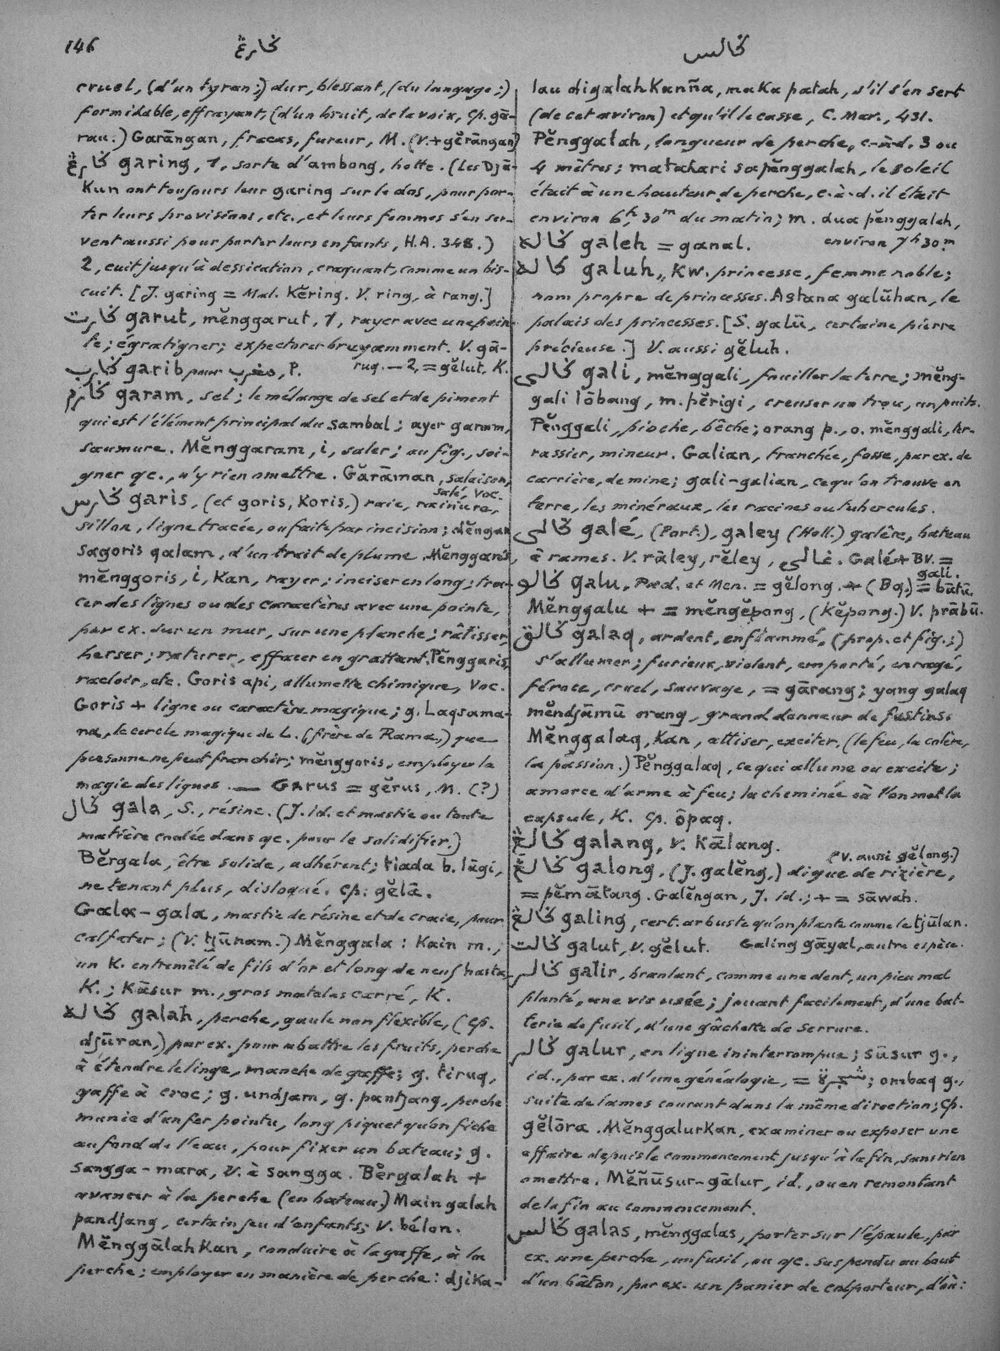 146
ݢارڠ
ݢالس
cruel, (d'un tyran;) dur, blessant, (du langage;)
formidable, effrayant, (d'un bruit, de la voix, Cp. gā-
rau.) Garāngan, fracas, fureur, M. (V.+gĕrāngan)
ݢارڠ garing, 1, sorte d'ambong, hotte. (Les Djā-
Kun ont toujours leur garing sur le dos, pour por-
ter leurs provisions, etc., et leurs femmes s'en ser-
vent aussi pour porter leurs enfants, H.A. 348.)
2, cuit jusqu'à dessication, craquant, comme un bis-
cuit. [J. garing = Mal. Kĕring. V. ring, à rang.]
ݢارت garut, mĕnggarut, 1, rayer avec une poin-
te; égratigner; expectorer bruyamment. V. gā-
rug. — 2, = gĕlut, K.
ݢارب garib pour مغرب, P.
ݢارم garam, sel; le mélange de sel et de piment
qui est l'élément principal du sambal; ayer garam,
saumure. Mĕnggaram, i, saler; au fig., soi-
gner qc., n'y rien omettre. Gărāman, salaison,
salé, Voc.
ݢارس garis, (et goris, Koris,) raie, rainure,
sillon, ligne tracée, ou faite par incision; dĕngan
sagoris qalam, d'un trait de plume. Mĕnggaris,
mĕnggoris, i, Kan, rayer; inciser en long; tra-
cer des lignes ou des caractères avec une pointe,
par ex. sur un mur, sur une planche; râtisser,
herser; raturer, effacer en grattant. Pĕnggaris,
racloir, etc. Goris api, allumette chimique, Voc.
Goris + ligne ou caractère magique; g. Laqsama-
na, le cercle magique de L. (frère de Rama,) que
personne ne peut franchir; mĕnggoris, employer la
magie des lignes. — Garus = gĕrus, M. (?)
ݢال gala, S., résine. (J. id. et mastic ou toute
matière coulée dans qc. pour le solidifier.)
Bĕrgala, être solide, adhérent; tiada b. lāgi,
ne tenant plus, disloqué. Cp. gĕlā.
Gala-gala, mastic de résine et de craie, pour
calfater; (V. tjūnam.) Mĕnggala: Kain m.,
un K. entremêlé de fils d'or et long de neuf hasta
K.; Kāsur m., gros matelas carré, K.
ݢاله galah, perche, gaule non flexible, (Cp.
djūran,) par ex. pour abattre les fruits, perche
à étendre le linge, manche de gaffe; g. tiruq,
gaffe à croc; g. undjam, g. pantjang, perche
munie d'un fer pointu, long piquet qu'on fiche
au fond de l'eau, pour fixer un bateau; g.
sangga-mara, V. à sangga. Bĕrgalah +
avancer à la perche (en bateau.) Main galah
pandjang, certain jeu d'enfants; V. bélon.
Mĕnggālahkan, conduire à la gaffe, à la
perche; employer en manière de perche: djika-
lau digalahKanña, maKa patah, s'il s'en sert
(de cet aviron) et qu'il le casse, C. Mar., 431.
Pĕnggalah, longueur de perche, c-à-d. 3 ou
4 mètres; matahari sapĕnggalah, le soleil
était à une hauteur de perche, c.-à-d. il était
environ 6h 30m du matin; m. dua pĕnggalah,
environ 7h 30m
ݢاله galeh = ganal.
ݢاله galuh, Kw. princesse, femme noble;
nom propre de princesses. Astana galūhan, le
palais des princesses. [S. galū, certaine pierre
précieuse.] V. aussi gĕluh.
ݢالي gali, mĕnggali, fouiller la terre; mĕng-
gali lōbang, m. pĕrigi, creuser un trou, un puits.
Pĕnggali, pioche, bêche; orang p., o. mĕnggali, ter-
rassier, mineur. Galian, tranchée, fosse, par ex. de
carrière, de mine; gali-galian, ce qu'on trouve en
terre, les minéraux, les racines ou tubercules.
ݢالي galé, (Port.), galey (Holl.) galère, bateau
à rames. V. rāley, rĕley, غالي. Galé + BV. =
gali.
ݢالو galu, Pad. et Men. = gĕlong. + (Bq.) = būtu.
Mĕnggalu + = mĕngĕpong, (Kĕpong.) V. prābū.
ݢالق galaq, ardent, enflammé, (prop. et fig.;)
s'allumer; furieux, violent, emporté, enragé,
féroce, cruel, sauvage, = gārang; yang galaq
mĕndjāmū orang, grand donneur de festins.
Mĕnggalaq, Kan, attiser, exciter, (le feu, la colère,
la passion.) Pĕnggalaq, ce qui allume ou excite;
amorce d'arme à feu; la cheminée où l'on met la
capsule, K. Cp. ôpaq.
ݢالڠ galang, V. Kālang.
(V. aussi gĕlong.)
ݢالڠ galong, (J. galĕng,) digue de rizière,
= pĕmātang. Galĕngan, J. id.; + = sāwah.
ݢالڠ galing, cert. arbuste qu'on plante comme le tjūlan.
Galing gāyal, autre espèce.
ݢالت galut, V. gĕlut.
ݢالر galir, branlant, comme une dent, un pieu mal
planté, une vis usée; jouant facilement, d'une bat-
terie de fusil, d'une gâchette de serrure.
ݢالر galur, en ligne ininterrompue; sūsur g.,
id., par ex. d'une généalogie, = شجرة; ombaq g.,
suite de lames courant dans la même direction; Cp.
gĕlōra. MĕnggalurKan, examiner ou exposer une
affaire depuis le commencement jusqu'à la fin, sans rien
omettre. Mĕñūsur-gālur, id., ou en remontant
de la fin au commencement.
ݢالس galas, mĕnggalas, porter sur l'épaule, par
ex. une perche, un fusil, ou qc. suspendu au bout
d'un bâton, par ex. un panier de colporteur, d'où: